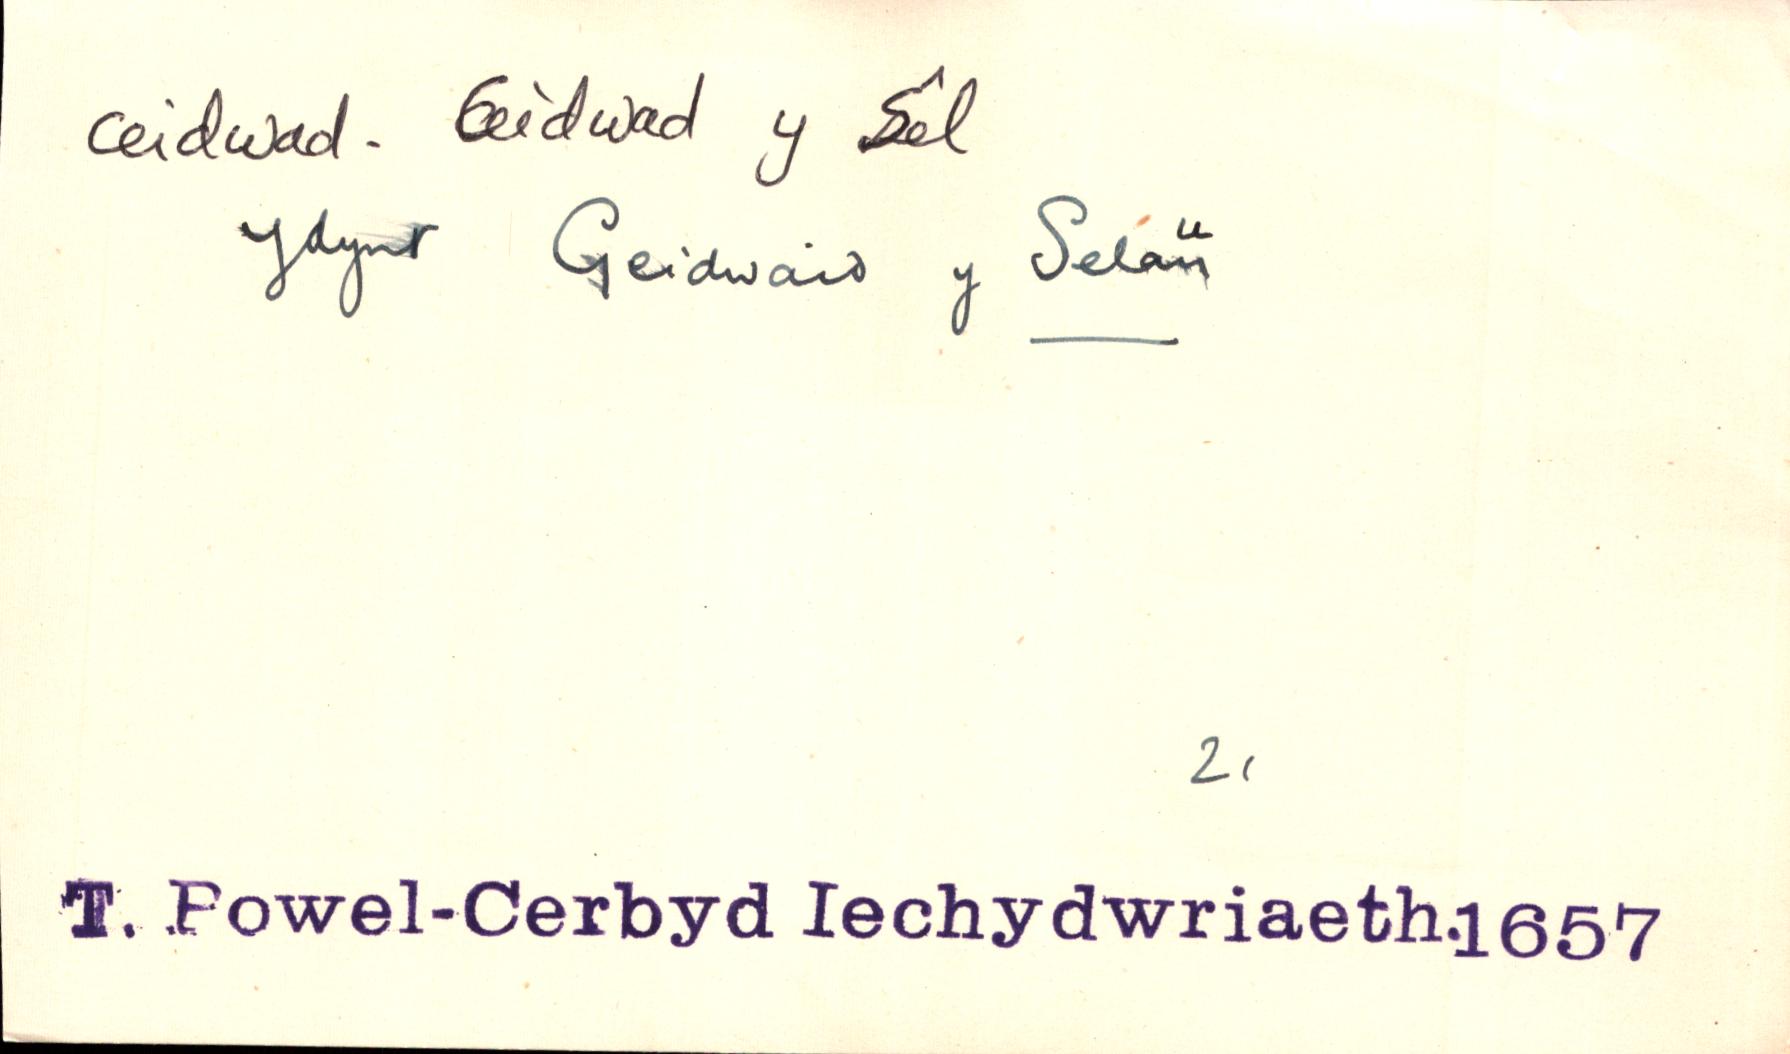 ceidwad. Ceidwad y Sêl
Ydynt Geidwaid y Selau
2,
T. Powel-Cerbyd Iechydwriaeth.1657